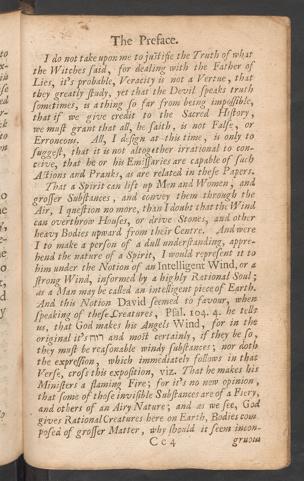 The Preface.
I do not take upon me to justifie the Truth of what
the Witches said, for dealing with the Father of
Lies, it's probable, Veracity is not a Vertue, that
they greatly study, yet that the Devil speaks truth
sometimes, is a thing so far from being impossible,
that if we give credit to the Sacred History,
we must grant that all, he saith, is not False, or
Erroneous. All, I design at this time, is only to
suggest, that it is not altogether irrational to con-
ceive, that he or his Emissaries are capable of such
Actions and Pranks, as are related in these Papers.
That a Spirit can lift up Men and Women, and
grosser Substances, and convey them through the
Air, I question no more, than I doubt that the Wind
can overthrow Houses, or drive Stones, and other
heavy Bodies upward from their Centre. And were
I to make a person of a dull understanding, appre-
hend the nature of a Spirit, I would represent it to
him under the Notion of an Intelligent Wind, or a
strong Wind, informed by a highly Rational Soul;
as a Man may be called an intelligent piece of Earth.
And this Notion David seemed to favour, when
speaking of these Creatures, Psal. 104. 4. he tells
us, that God makes his Angels Wind, for in the
original it's רוח and most certainly, if they be so,
they must be reasonable windy substances; nor doth
the expression, which immediately follows in that
Verse, cross this exposition, viz. That he makes his
Ministers a flaming Fire; for it's no new opinion,
that some of those invisible Substances are of a Fiery,
and others of an Airy Nature; and as we see, God
gives Rational Creatures here on Earth, Bodies com-
posed of grosser Matter, why should it seem incon-
Cc 4 gruous